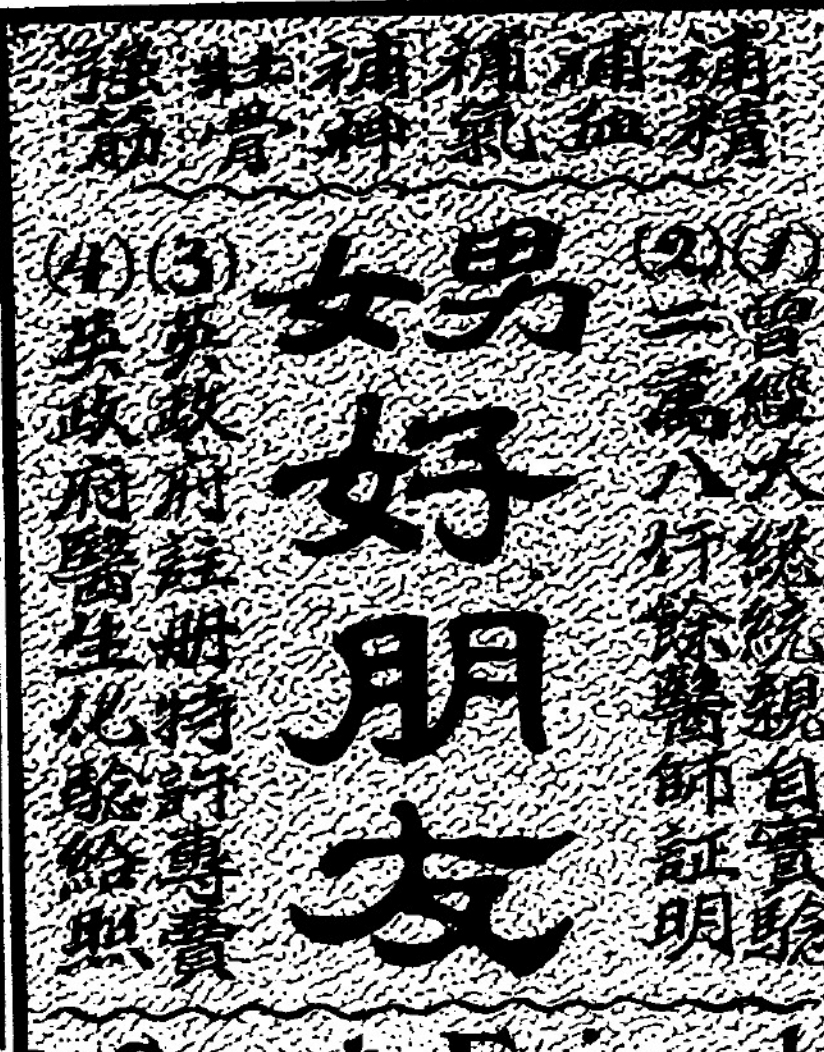 補精
補血
補氣
補神
壯骨
強筋
(1)曾經大總統親自實驗
(2)二萬八仟餘醫師証明
男女
好好朋友
(3)英政府註册特許專賣
(4)英政府醫生化驗給照